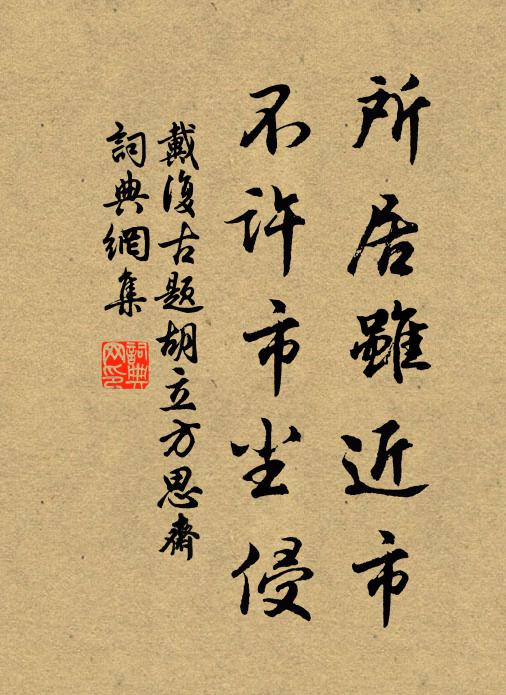 所居雖近市
不許市尘侵
戴復古題胡立方思齋
詞典網集
詞典网印